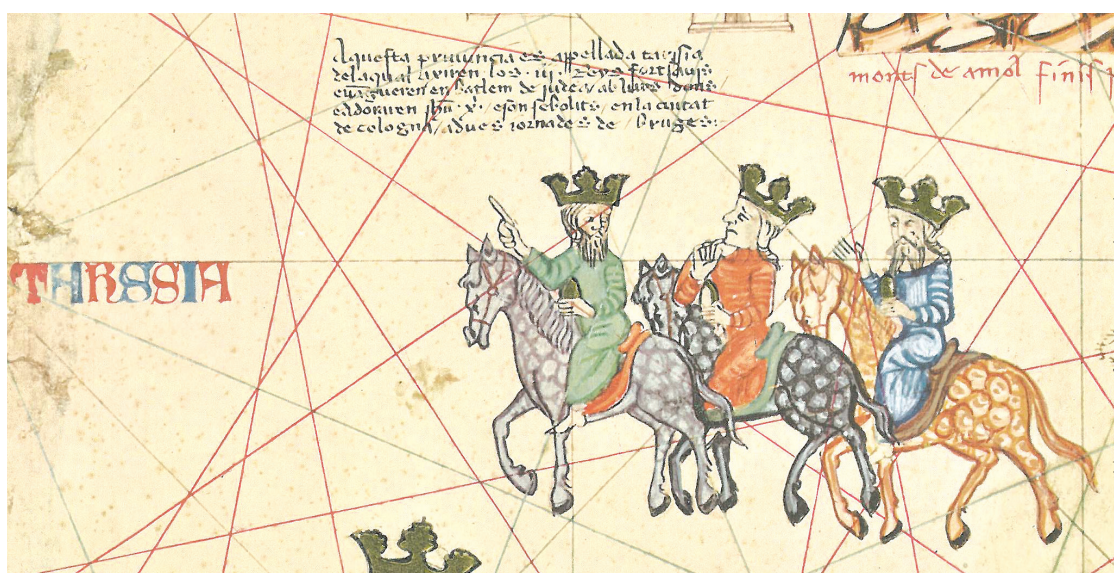 Aquesta provincia es appellada tarssia
de la qual axiren los .iij. Reys fort savis
e vangueren en batlem de judea ab lurs dons
e adoraren jhu xp. e son sebolits en la ciutat
de cologna / a dues jornades de bruges :
monts de amol finis
TARSSIA